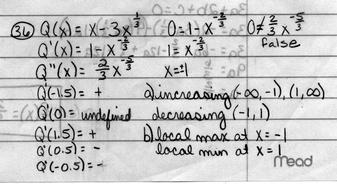 (36) Q(x) = x - 3x^(1/3) 0 = 1 - x^(-2/3) 0 ≠ 2/3 x^(-5/3)
Q'(x) = 1 - x^(-2/3) 1 = x^(-2/3) false
Q''(x) = 2/3 x^(-5/3) x = ±1
Q'(-1.5) = + a) increasing (-∞, -1), (1, ∞)
Q'(0) = undefined decreasing (-1, 1)
Q'(1.5) = + b) local max at x = -1
Q'(0.5) = - local min at x = 1
Q'(-0.5) = -
Mead